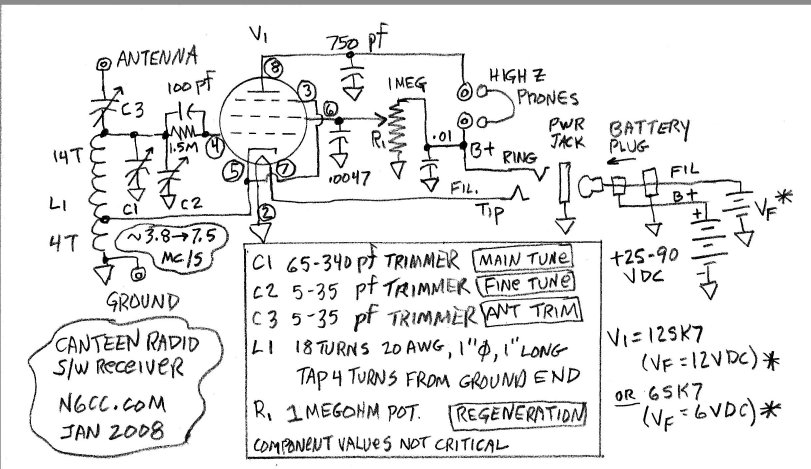 V1
750 pf
ANTENNA
8
100 pf
3
1 MEG
HIGH Z
PHONES
C3
6
R1
PWR
JACK
BATTERY
PLUG
1.5M
4
.01
B+
RING
14T
5
7
.0047
FIL.
TIP
FIL
B+
VF *
L1
C1
C2
2
+
4T
~3.8→7.5
MC/S
+25-90
VDC
GROUND
C1 65-340 pf TRIMMER MAIN TUNE
C2 5-35 pf TRIMMER FINE TUNE
C3 5-35 pf TRIMMER ANT TRIM
L1 18 TURNS 20 AWG, 1"φ, 1" LONG
TAP 4 TURNS FROM GROUND END
R1 1 MEGOHM POT. REGENERATION
COMPONENT VALUES NOT CRITICAL
CANTEEN RADIO
S/W RECEIVER
N6CC.COM
JAN 2008
V1 = 12SK7
(VF = 12VDC) *
OR 6SK7
(VF = 6VDC) *